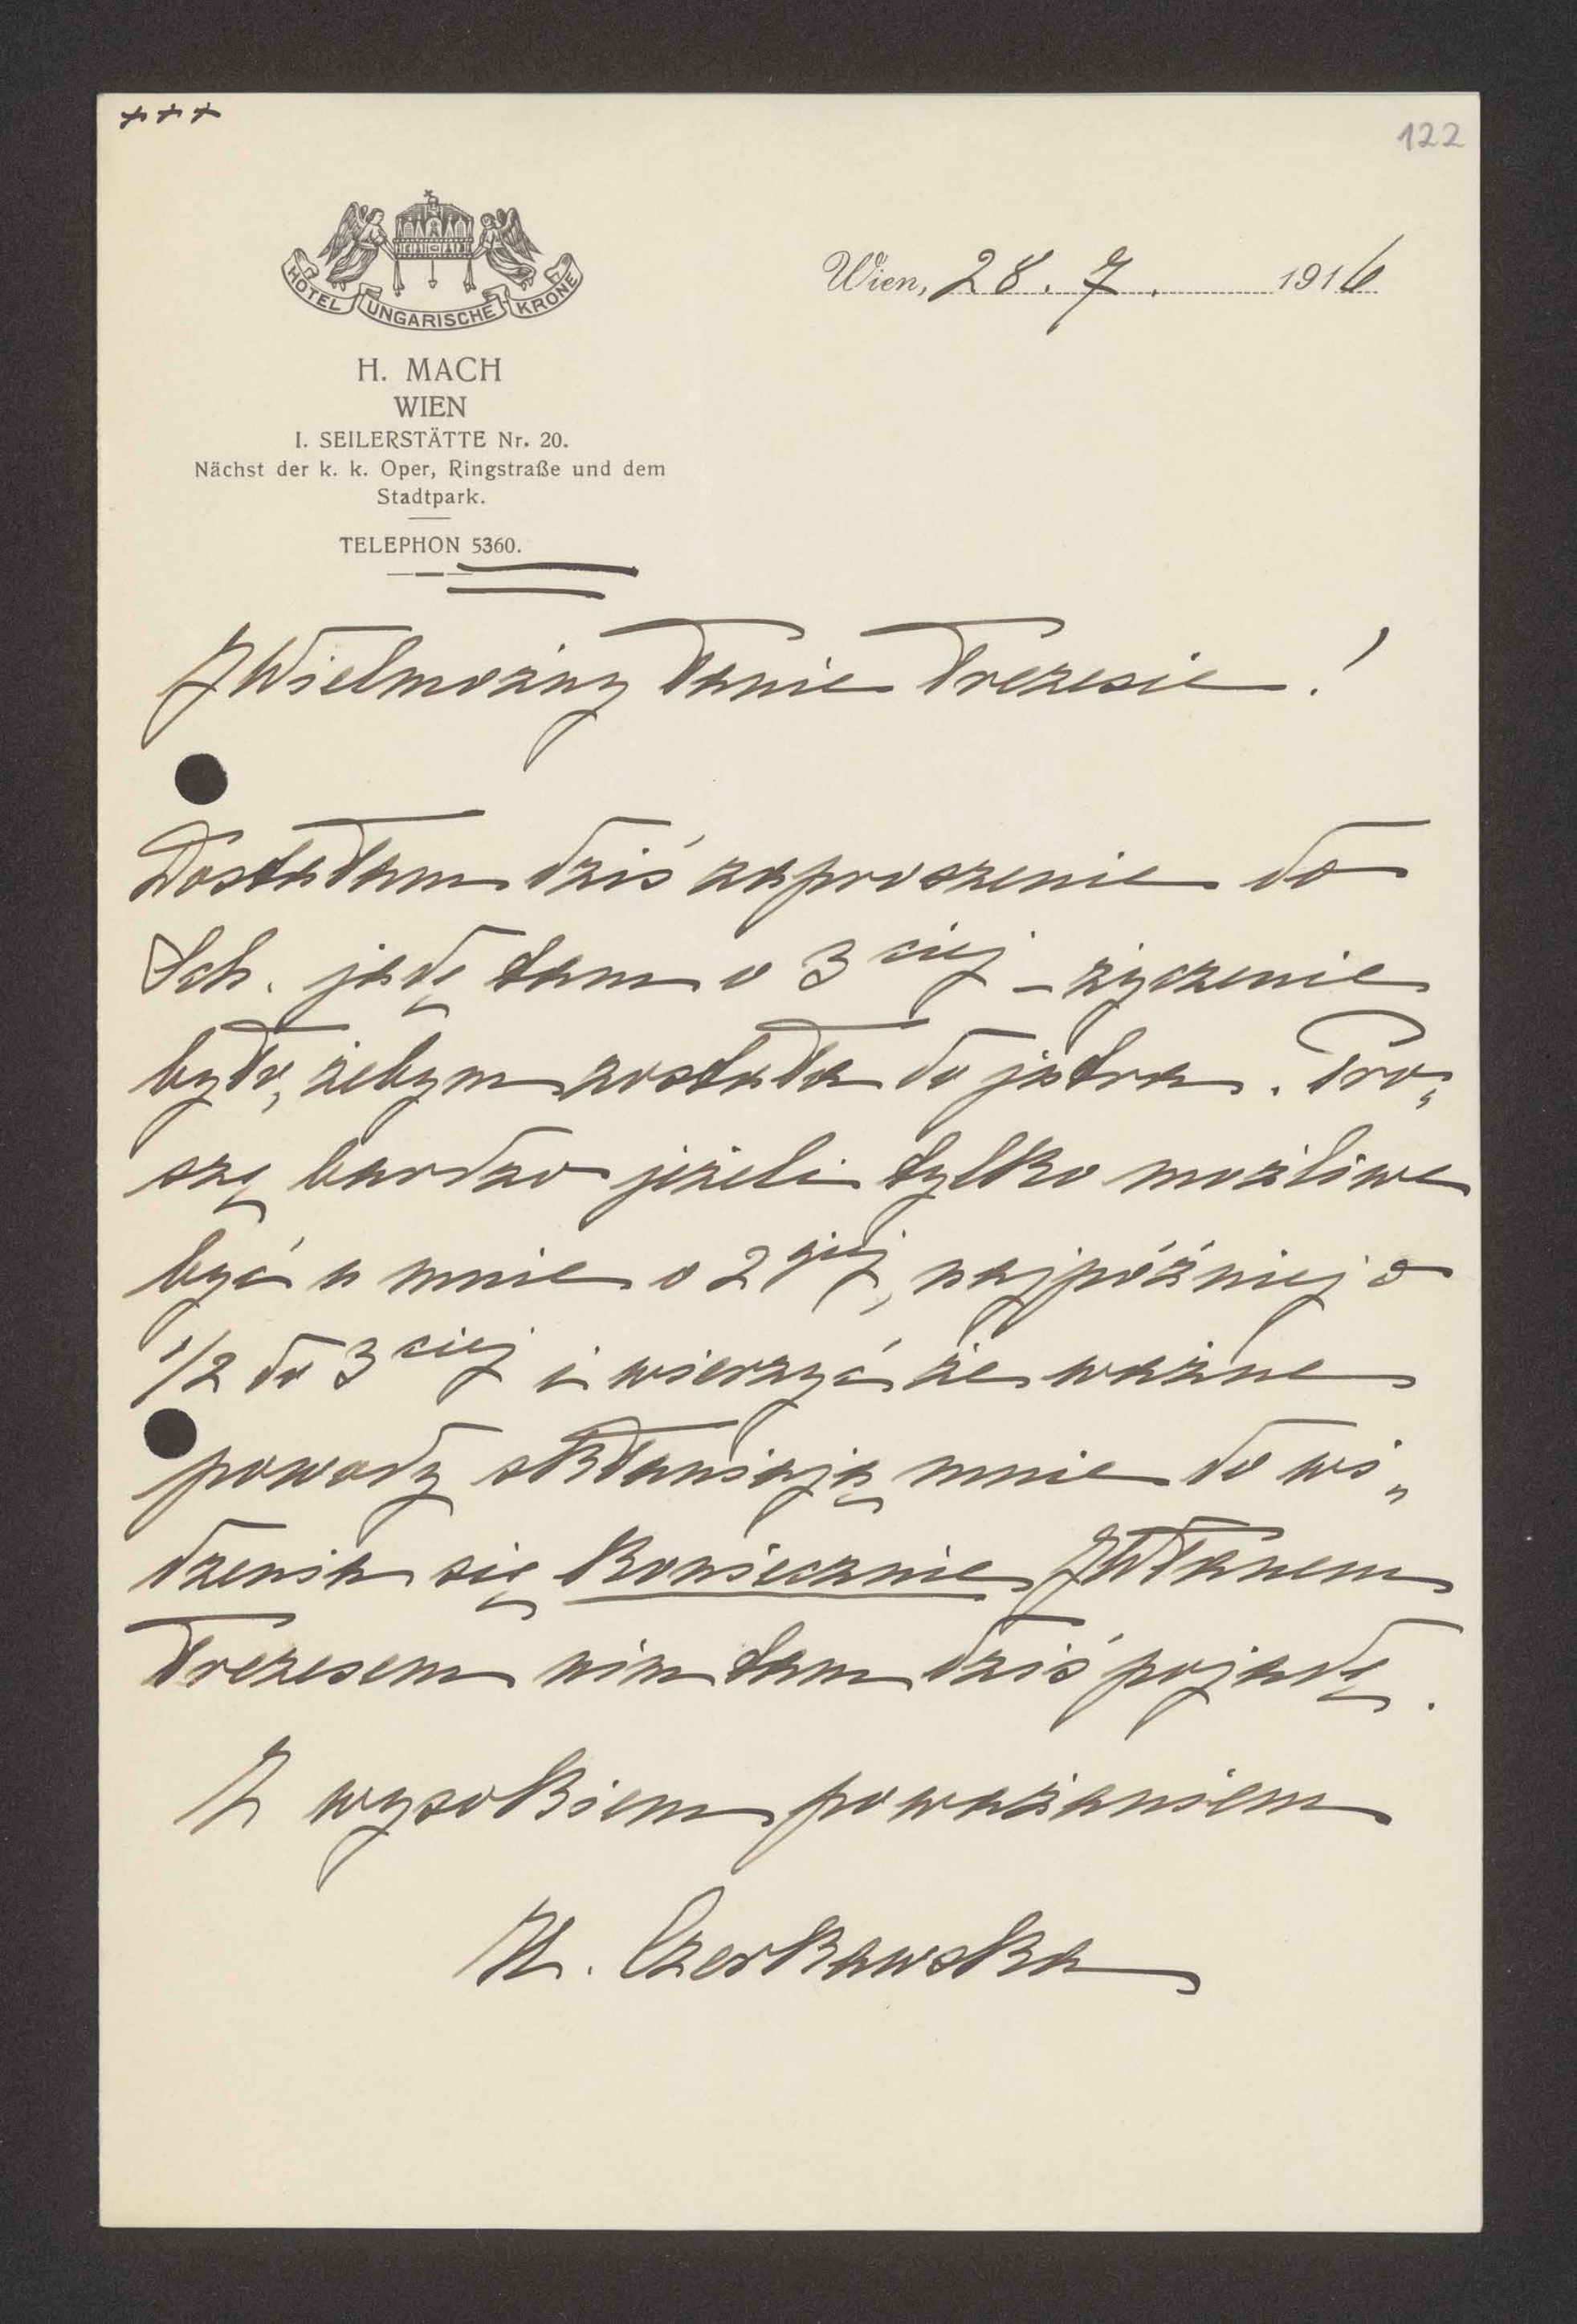 +++
122
HOTEL UNGARISCHE KRONE
Wien, 28. 7. 1916
H. MACH
WIEN
I. SEILERSTÄTTE Nr. 20.
Nächst der k. k. Oper, Ringstraße und dem
Stadtpark.
TELEPHON 5360.
JWielmożny Panie Prezesie!
Dostałam dziś zaproszenie do
Sch. jadę tam o 3 ciej – życzenie
było, żebym została do jutra. Pro„
szę bardzo jeżeli tylko możliwe
być u mnie o 2 giej, najpóźniej o
1/2 do 3 ciej i wierzyć że ważne
powody skłaniają mnie do wi„
dzenia się koniecznie JWPanem
Prezesem nim tam dziś pojadę.
Z wysokiem poważaniem
Czerkawska